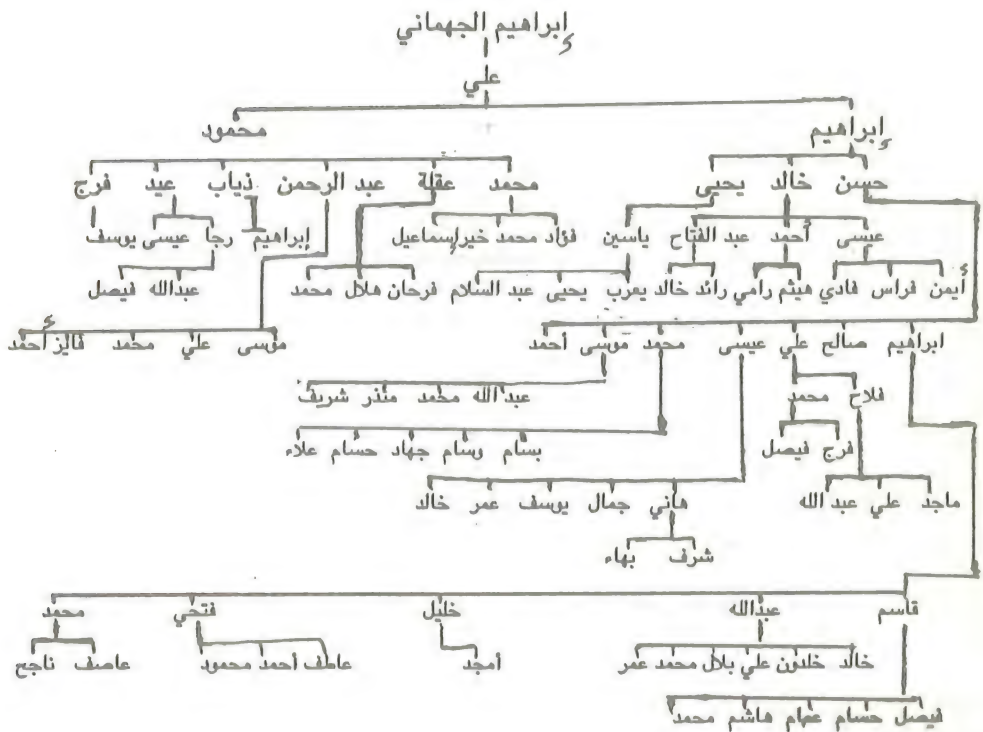 إبراهيم الجهماني
علي
إبراهيم محمود
حسن خالد يحيى محمد عقلة عبد الرحمن ذياب عيد فرج
عيسى أحمد عبد الفتاح ياسين فؤاد محمد خير إسماعيل إبراهيم رجا عيسى يوسف
أيمن فراس فادي هيثم رامي رائد خالد يعرب يحيى عبد السلام فرحان هلال محمد عبدالله فيصل
ابراهيم صالح علي عيسى محمد موسى أحمد موسى علي محمد فايز أحمد
فلاح محمد عبد الله محمد منذر شريف
فرج فيصل بسام وسام جهاد حسام علاء
ماجد علي عبد الله هاني جمال يوسف عمر خالد
شرف بهاء
قاسم عبدالله خليل فتحي محمد
خالد خلدون علي بلال محمد عمر أمجد عاطف أحمد محمود عاصف ناجح
فيصل حسام هاشم محمد